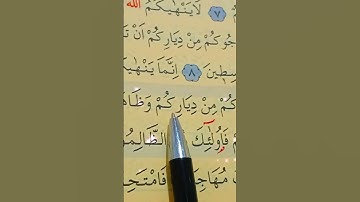 ٧ لَا يَنْهٰيكُمُ اللّٰهُ
جُوكُمْ مِنْ دِيَارِكُمْ اَنْ تَ
سِطِينَ ٨ اِنَّمَا يَنْهٰي
كُمْ مِنْ دِيَارِكُمْ وَظَا
فَاُولٰٓئِكَ الظَّالِمُو
مُهَاجِرَا فَامْتَحِ